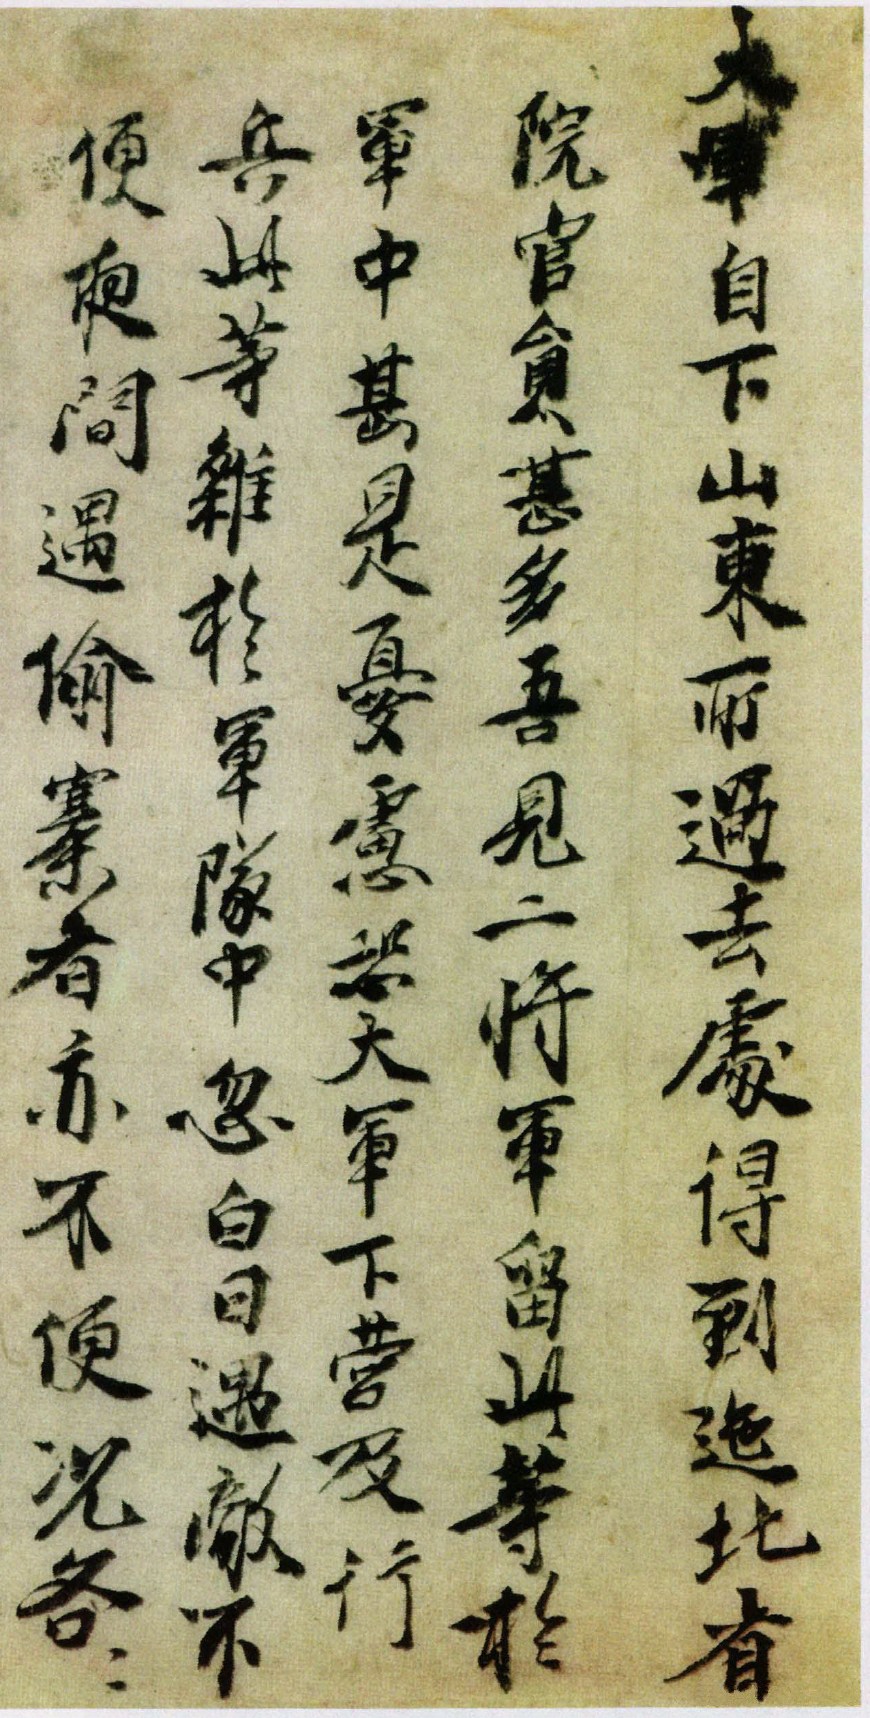 大軍自下山東所過去處得到迤北省
院官員甚多吾見二將軍留此等於
軍中甚是憂慮恐大軍下營及行
兵此等雜於軍隊中忽白日遇敵不
便夜間遇偷寨者亦不便況各〻